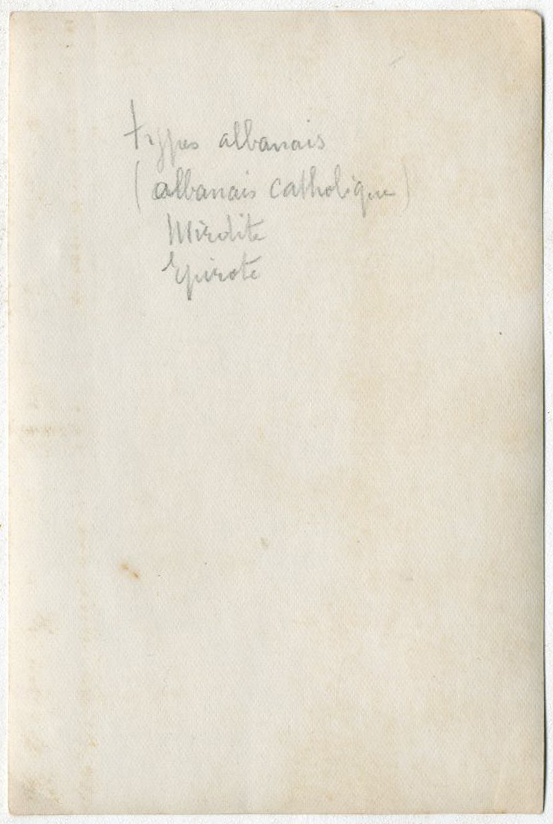 types albanais
(albanais catholique)
Mirdite
Epirote